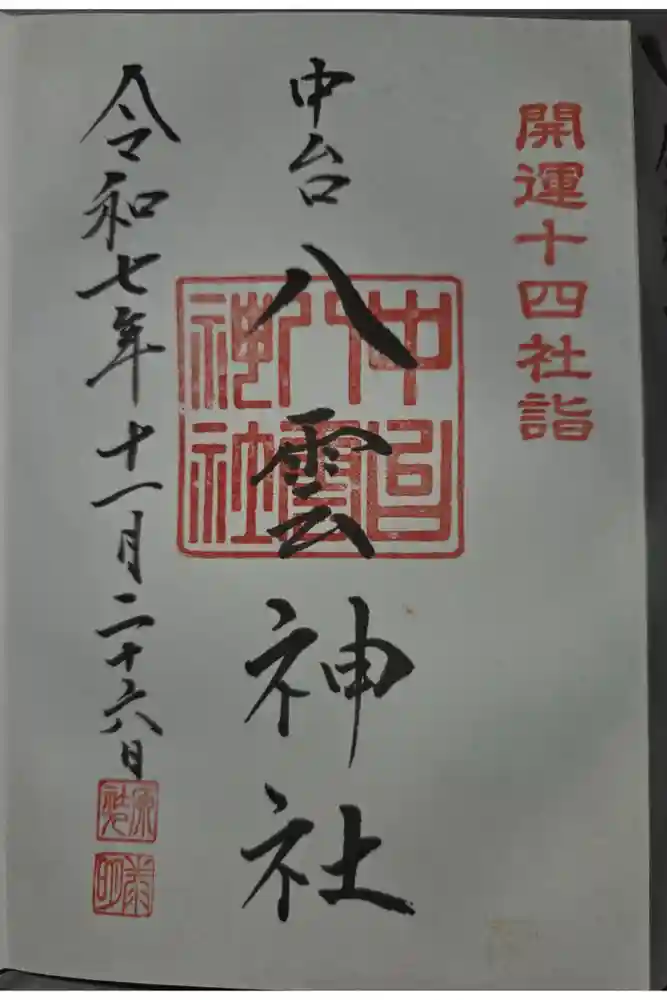 開運十四社詣
中台八雲神社
中台八雲神社
令和七年十一月二十六日